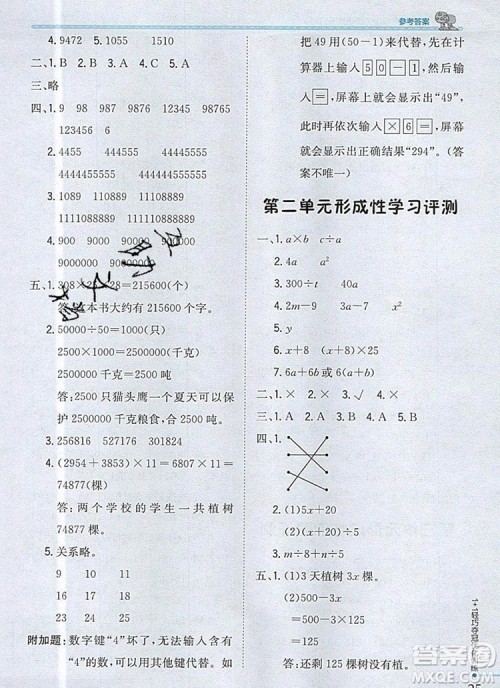 参考答案
4. 9472 1051 1510
二、1. B 2. A 3. A
三、略
四、1. 9 98 987 9876 98765
123456 6
2. 44444444 44455555
44444555555 44444455555
3. 1089 110889 11108889
1111088889
4. 90 9000 900000
90000000 9000000000
五、1. 308×25×28=215600(个)
答:这本书大约有 215600 个字。
2. 50000÷50=1000(只)
2500×1000=2500000(千克)
2500000 千克=2500 吨
答:2500 只猫头鹰一个夏天可以保
护 2500000 千克粮食,是 2500 吨。
3. 256816 527725 249831
4. (2954+3853)×11=6807×11=
74877(棵)
答:两个学校的学生一共植树
74877 棵。
5. 关系略。
9 10 11
16 17 18
23 24 25
附加题:数字键“4”坏了,无法输入含
有“4”的数,可以用其他算式代替,如
把 49 用(50-1)来代替,例如在计
算器上输入[5][0][-][1],再输
入[=],屏幕上就会显示“49”,
然后再依次输入[×][6][=],屏幕
就会出现正确结果“294”。(答
案不唯一)
第二单元形成性学习评测
一、1. a×b c÷a
2. 4a a²
3. 300÷t 40a
4. 16m 2.3a 3a x²
5. y
6. x+8 x-8
二、1. × 2. × 3. × 4. √
三、1. A 2. A 3. C 4. C 5. A
四、1.
2. (1)5x+20
(2)5x÷20
3. m÷8 n÷5 m÷8-n÷5
五、1. (1)3 天植树 3x 棵。
(2)500-3x
(3)500-3x=500-3×125=
125
答:还剩 125 棵树没植。
1+1轻巧夺冠